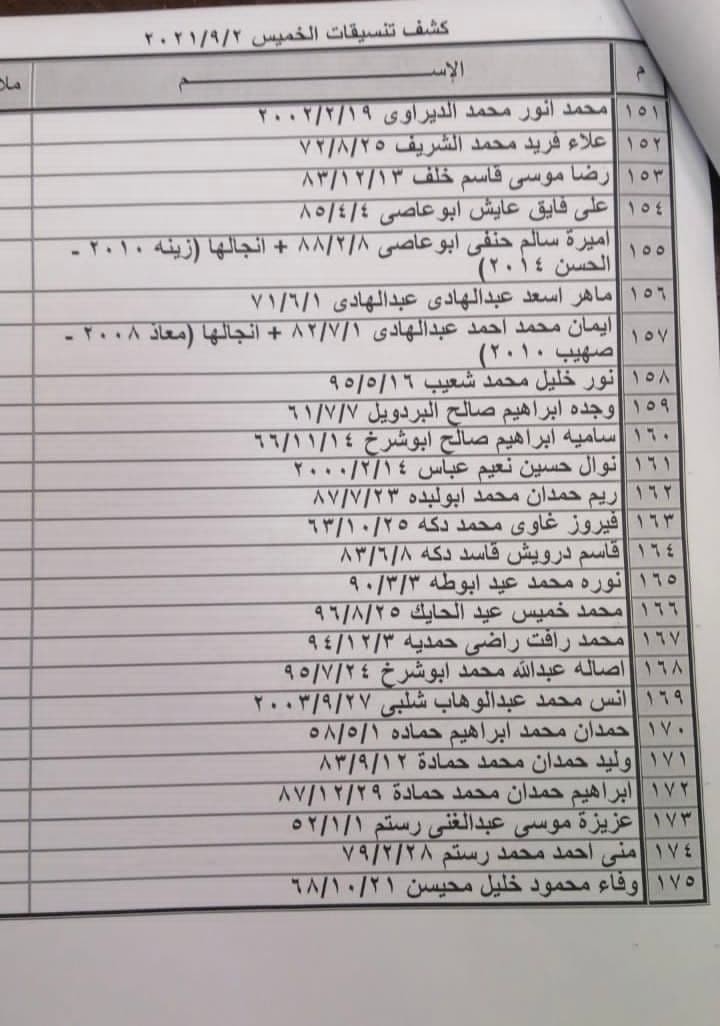 كشف تنسيقات الخميس ٢٠٢١/٩/٢
م الإســـــــــــــــــم ملا
١٥١ محمد انور محمد الديراوى ٢٠٠٢/٢/١٩
١٥٢ علاء فريد محمد الشريف ٧٢/٨/٢٥
١٥٣ رضا موسى قاسم خلف ٨٣/١٢/١٣
١٥٤ على فايق عايش ابوعاصى ٨٥/٤/٤
١٥٥ اميرة سالم حنفى ابوعاصى ٨٨/٢/٨ + انجالها (زينه ٢٠١٠ -
الحسن ٢٠١٤)
١٥٦ ماهر اسعد عبدالهادى عبدالهادى ٧١/٦/١
١٥٧ ايمان محمد احمد عبدالهادى ٨٢/٧/١ + انجالها (معاذ ٢٠٠٨ -
صهيب ٢٠١٠)
١٥٨ نور خليل محمد شعيب ٩٥/٥/١٦
١٥٩ وجده ابراهيم صالح البردويل ٦١/٧/٧
١٦٠ ساميه ابراهيم صالح ابوشرخ ٦٦/١١/١٤
١٦١ نوال حسين نعيم عباس ٢٠٠٠/٢/١٤
١٦٢ ريم حمدان محمد ابولبده ٨٧/٧/٢٣
١٦٣ فيروز غاوى محمد دكه ٦٣/١٠/٢٥
١٦٤ قاسم درويش قاسد دكه ٨٣/٦/٨
١٦٥ نوره محمد عيد ابوطه ٩٠/٣/٣
١٦٦ محمد خميس عيد الحايك ٩٦/٨/٢٥
١٦٧ محمد رافت راضى حمديه ٩٤/١٢/٣
١٦٨ اصاله عبدالله محمد ابوشرخ ٩٥/٧/٢٤
١٦٩ انس محمد عبدالوهاب شلبى ٢٠٠٣/٩/٢٧
١٧٠ حمدان محمد ابراهيم حماده ٥٨/٥/١
١٧١ وليد حمدان محمد حمادة ٨٣/٩/١٢
١٧٢ ابراهيم حمدان محمد حمادة ٨٧/١٢/٢٩
١٧٣ عزيزة موسى عبدالغنى رستم ٥٢/١/١
١٧٤ منى احمد محمد رستم ٧٩/٢/٢٨
١٧٥ وفاء محمود خليل محيسن ٦٨/١٠/٢١